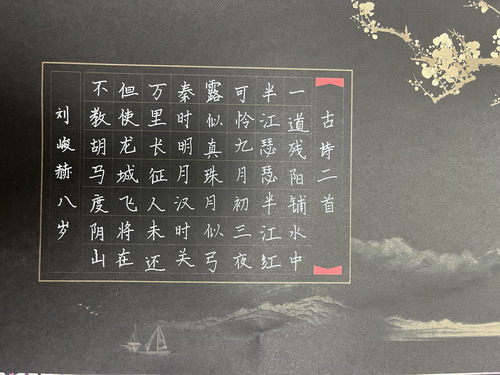 古诗二首
一道残阳铺水中
半江瑟瑟半江红
可怜九月初三夜
露似真珠月似弓
秦时明月汉时关
万里长征人未还
但使龙城飞将在
不教胡马度阴山
刘峻赫八岁